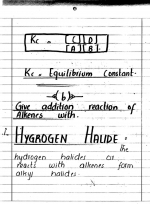 Kc = [C][D]
[A][B]
Kc = Equilibrium constant.
(b)
Give addition reaction of
Alkenes with.
1. HYGROGEN HALIDE : the
hydrogen halides or
reacts with alkenes form
alkyl halides.